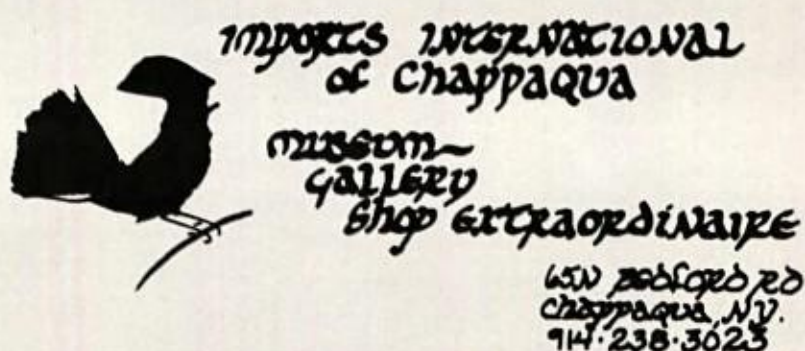 IMPORTS INTERNATIONAL
of CHAPPAQUA
MUSEUM~
GALLERY
SHOP EXTRAORDINAIRE
65N BEDFORD RD
CHAPPAQUA, N.Y.
914·238·3023